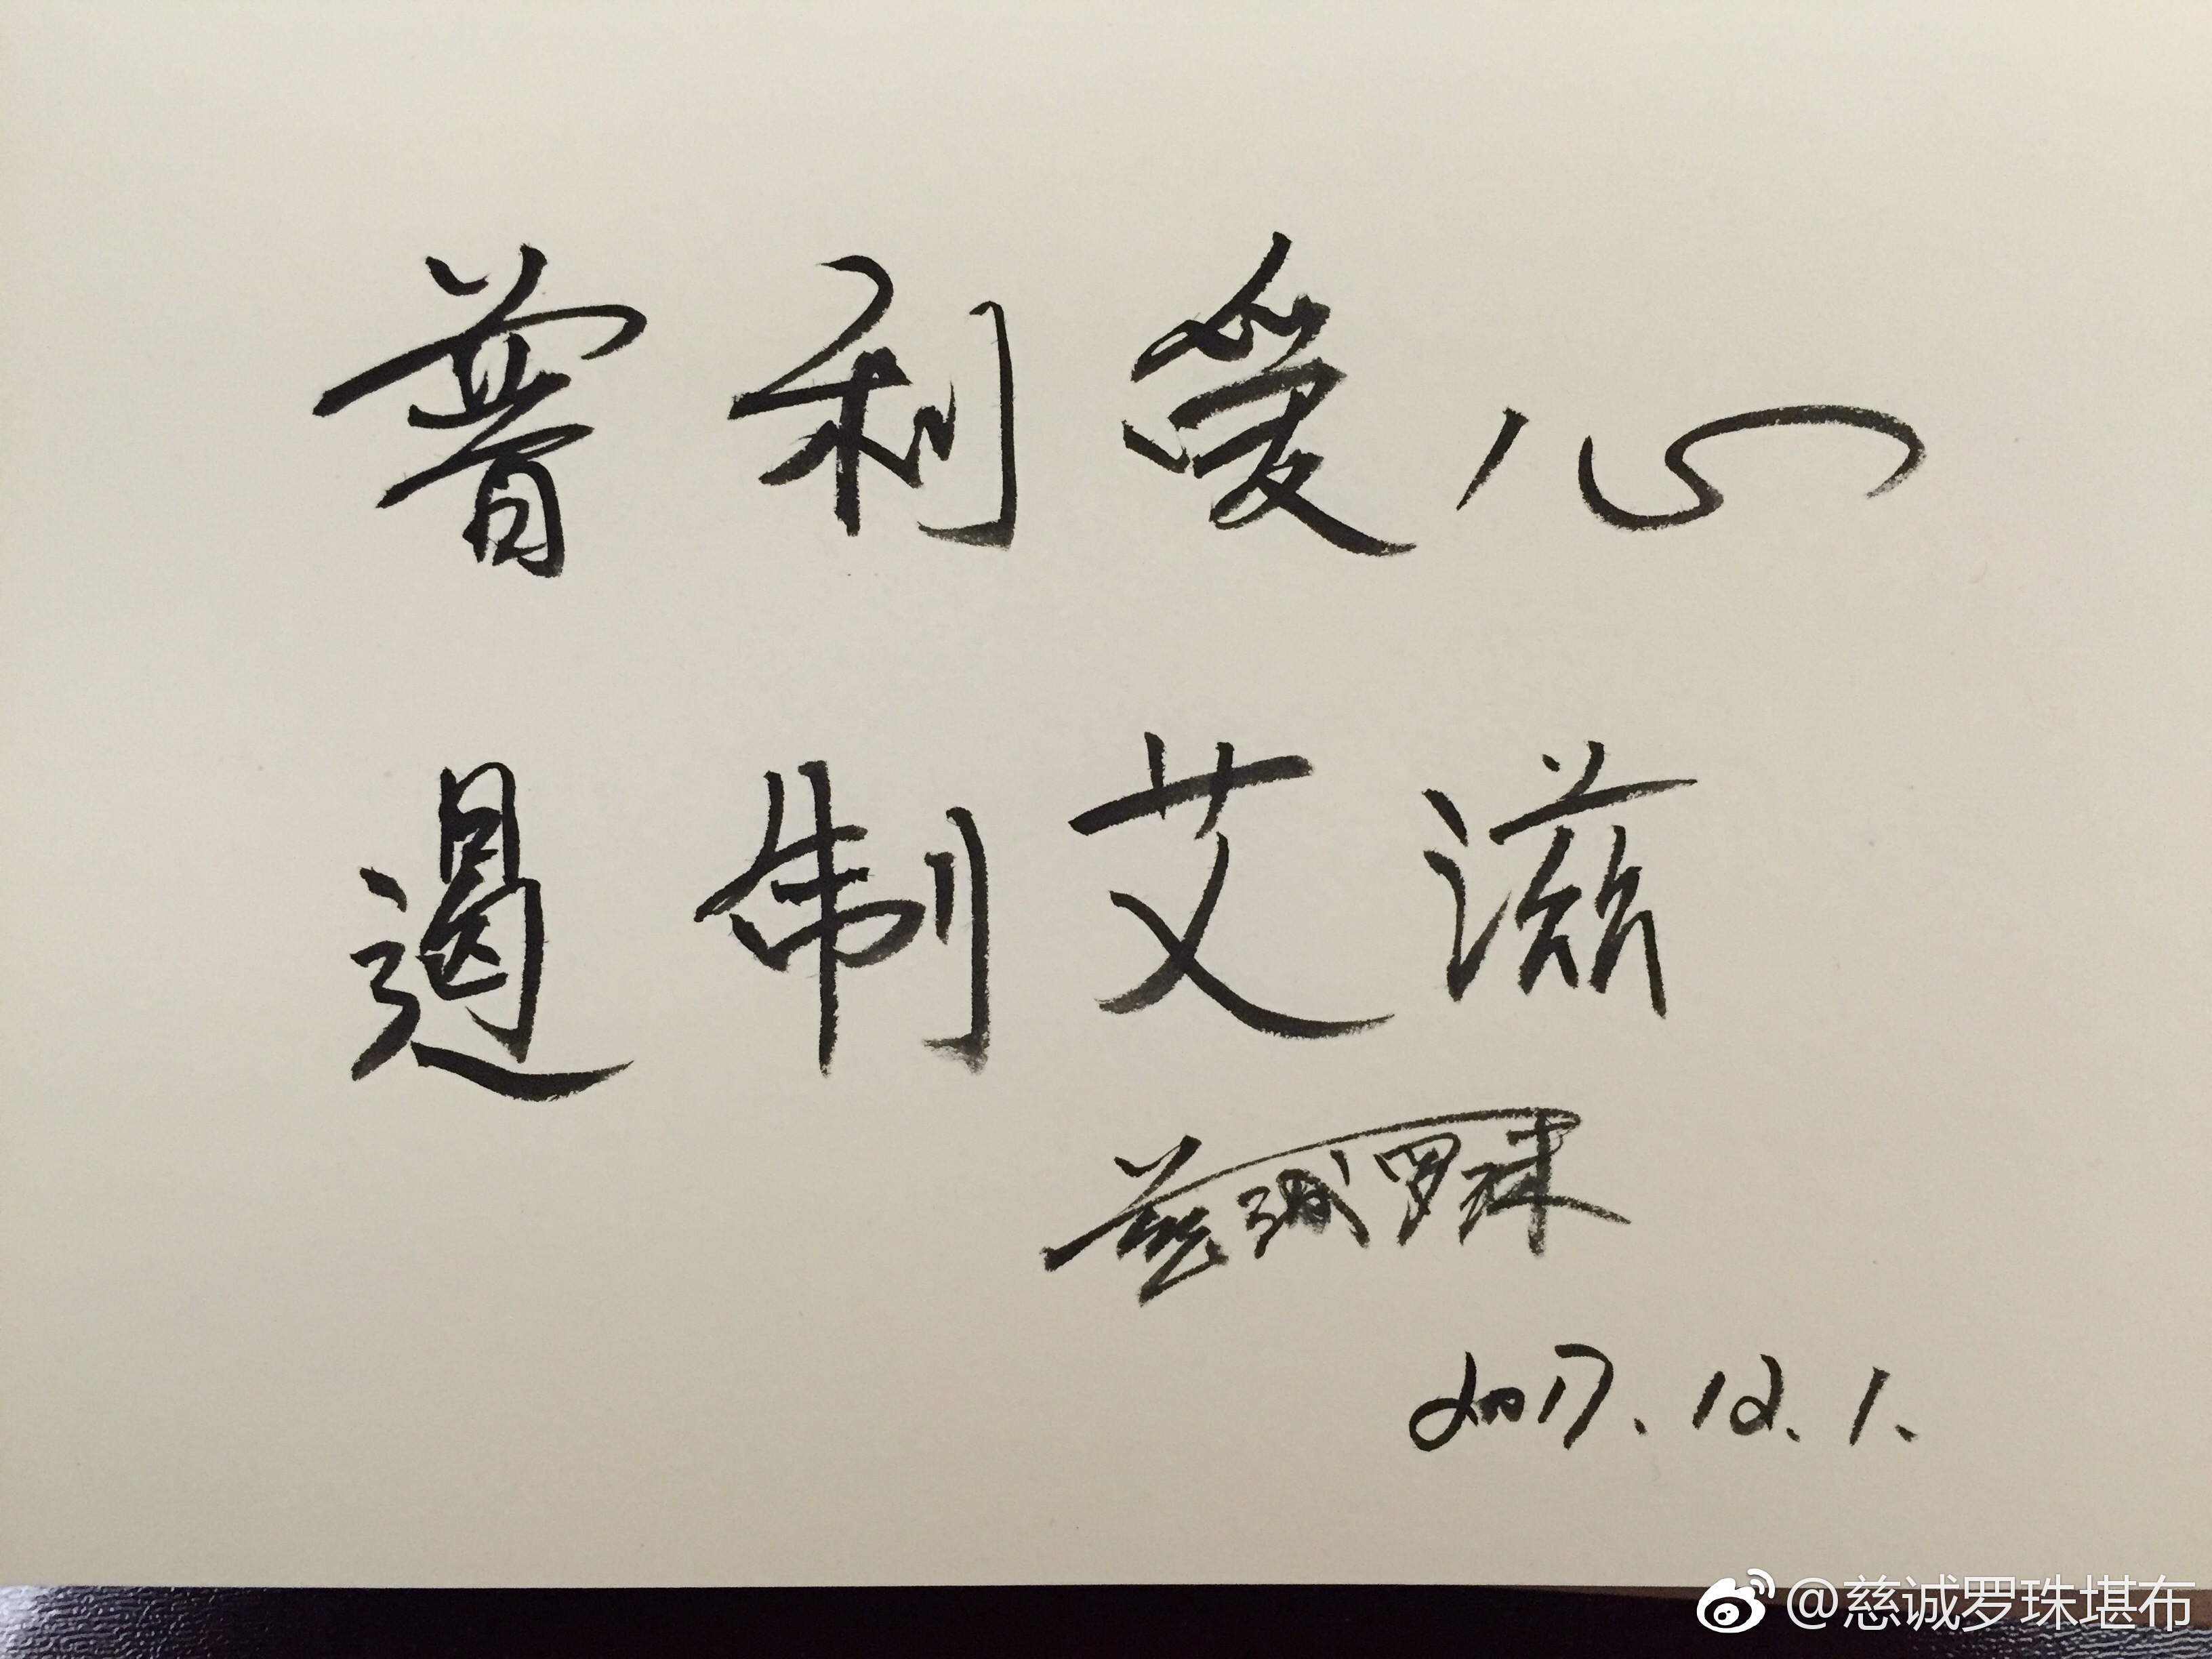 普利爱心
遏制艾滋
慈诚罗珠
2017.12.1.
@慈诚罗珠堪布